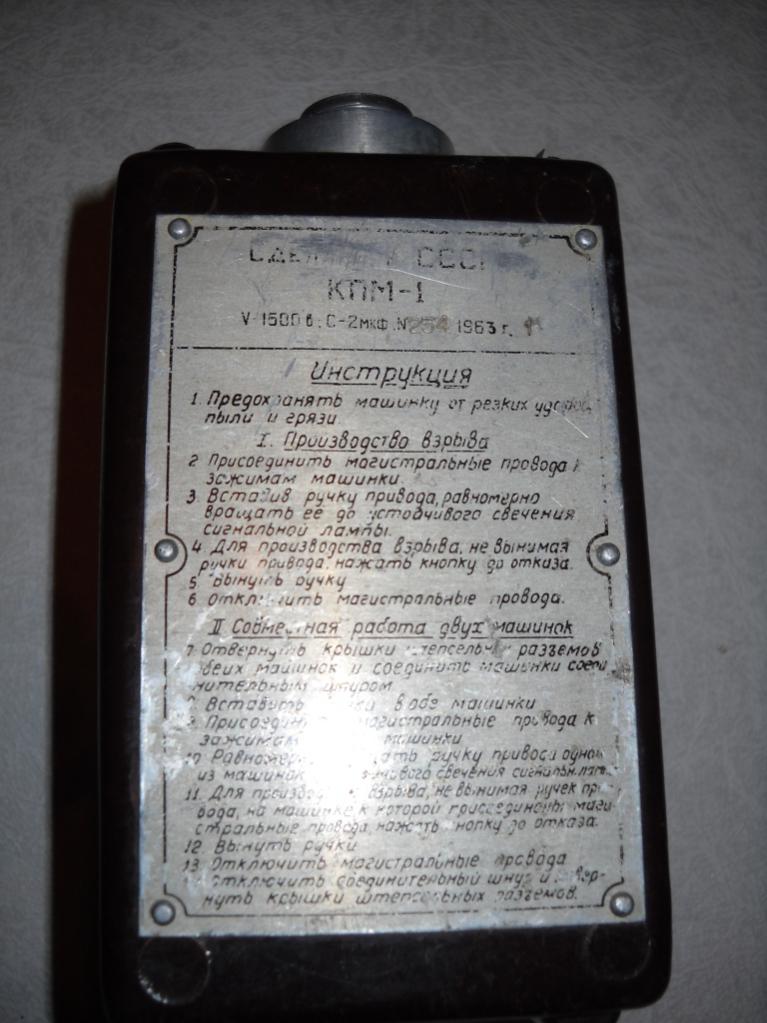 СДЕЛАНО В СССР
КПМ-1
V-1500 в; С-2 мкф. N 254 1963 г.
Инструкция
1. Предохранять машинку от резких ударов,
пыли и грязи
I. Производство взрыва
2 Присоединить магистральные провода к
зажимам машинки.
3. Вставив ручку привода, равномерно
вращать ее до устойчивого свечения
сигнальной лампы.
4. Для производства взрыва, не вынимая
ручки привода, нажать кнопку до отказа.
5 Вынуть ручку
6. Отключить магистральные провода.
II Совместная работа двух машинок
7. Отвернуть крышки штепсельн разъемов
обеих машинок и соединить машинки соеди
нительным шнуром
Вставить ручки в обе машинки
9. Присоединить магистральные провода к
зажимам машинки
10. Равномерно вращать ручку привода одной
из машинок свечения сигнальн.
11. Для производства взрыва, не вынимая ручек при
вода, на машинке к которой присоединены маги
стральные провода, нажать кнопку до отказа.
12. Вынуть ручки
13. Отключить магистральные провода
Отключить соединительный шнур и завер-
нуть крышки штепсельных разъемов.